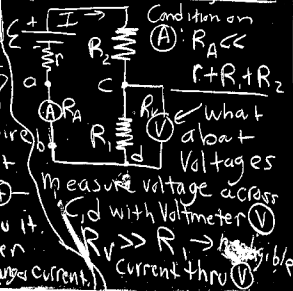 ε + I
R₂
r
a
c
A R_A
R_V V
b
R₁
d
Condition on
A : R_A <<
r+R₁+R₂
what
about
Voltages
measure voltage across
C,d with Voltmeter V
R_V >> R₁ →
current thru V
u it.
current.